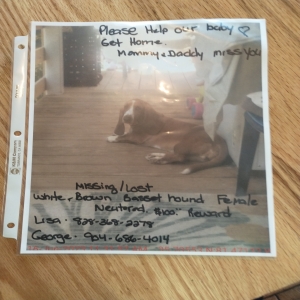 Please Help our baby
Get Home.
Mommy & Daddy miss you
Missing/Lost
White & Brown Basset hound Female
Neutered, $100. Reward
Lisa - 828-368-2378
George - 904-686-4014